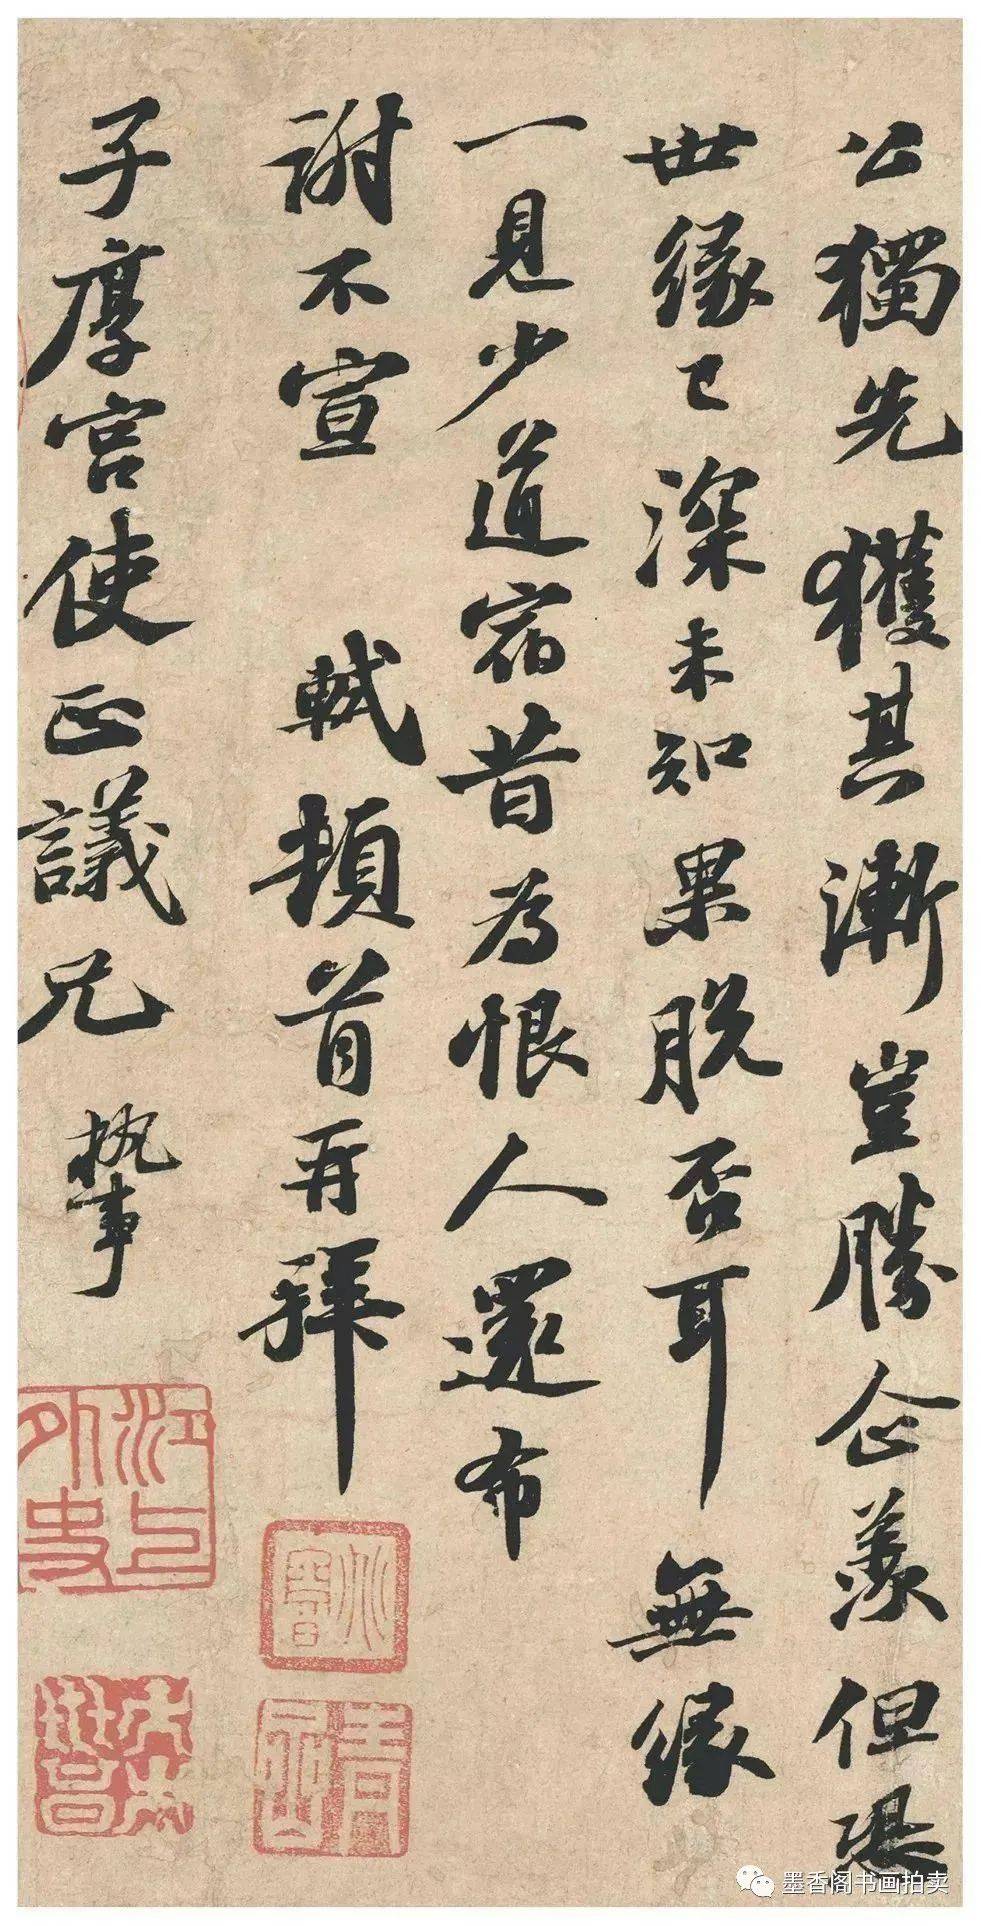 公獨先獲其漸豈勝企羨但恐
世緣已深未知果脫否耳無緣
一見少道宿昔為恨人還布
謝不宣 軾頓首再拜
子厚宮使正議兄執事
墨香阁书画拍卖